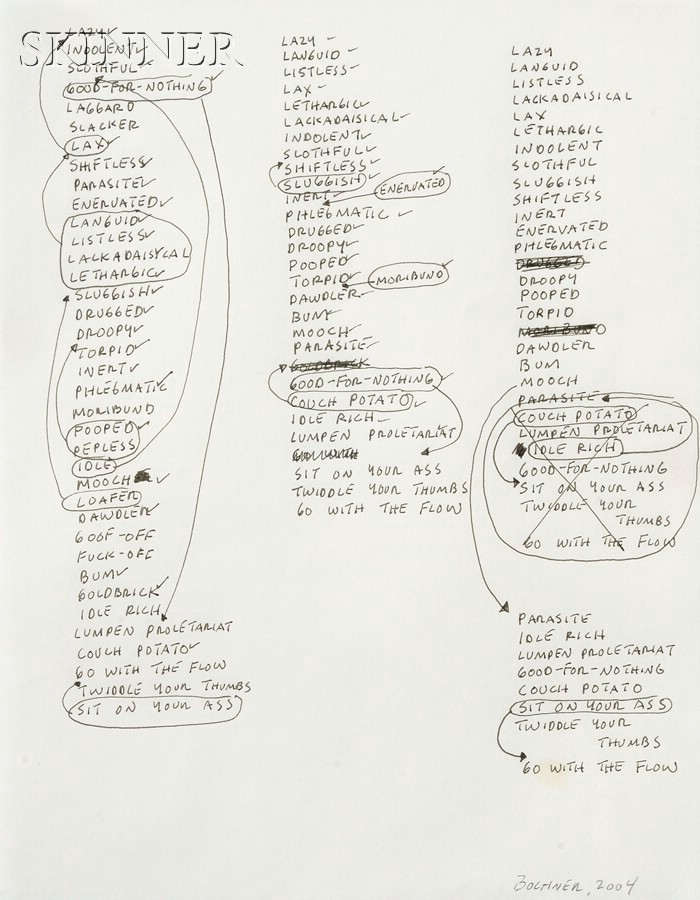 SKINNER
LAZY
INDOLENT
SLOTHFUL
GOOD-FOR-NOTHING
LAGGARD
SLACKER
LAX
SHIFTLESS
PARASITE
ENERVATED
LANGUID
LISTLESS
LACKADAISYCAL
LETHARGIC
SLUGGISH
DRUGGED
DROOPY
TORPID
INERT
PHLEGMATIC
MORIBUND
POOPED
PEPLESS
IDLE
MOOCH
LOAFER
DAWDLER
GOOF-OFF
FUCK-OFF
BUM
GOLDBRICK
IDLE RICH
LUMPEN PROLETARIAT
COUCH POTATO
GO WITH THE FLOW
TWIDDLE YOUR THUMBS
SIT ON YOUR ASS
LAZY
LANGUID
LISTLESS
LAX
LETHARGIC
LACKADAISICAL
INDOLENT
SLOTHFULL
SHIFTLESS
SLUGGISH
ENERVATED
INERT
PHLEGMATIC
DRUGGED
DROOPY
POOPED
TORPID
MORIBUND
DAWDLER
BUM
MOOCH
PARASITE
GOLDBRICK
GOOD-FOR-NOTHING
COUCH POTATO
IDLE RICH
LUMPEN PROLETARIAT
GO WITH
SIT ON YOUR ASS
TWIDDLE YOUR THUMBS
GO WITH THE FLOW
LAZY
LANGUID
LISTLESS
LACKADAISICAL
LAX
LETHARGIC
INDOLENT
SLOTHFUL
SLUGGISH
SHIFTLESS
INERT
ENERVATED
PHLEGMATIC
DRUGGED
DROOPY
POOPED
TORPID
MORIBUND
DAWDLER
BUM
MOOCH
PARASITE
COUCH POTATO
LUMPEN PROLETARIAT
IDLE RICH
GOOD-FOR-NOTHING
SIT ON YOUR ASS
TWIDDLE YOUR
THUMBS
GO WITH THE FLOW
PARASITE
IDLE RICH
LUMPEN PROLETARIAT
GOOD-FOR-NOTHING
COUCH POTATO
SIT ON YOUR ASS
TWIDDLE YOUR
THUMBS
GO WITH THE FLOW
BOCHNER, 2004